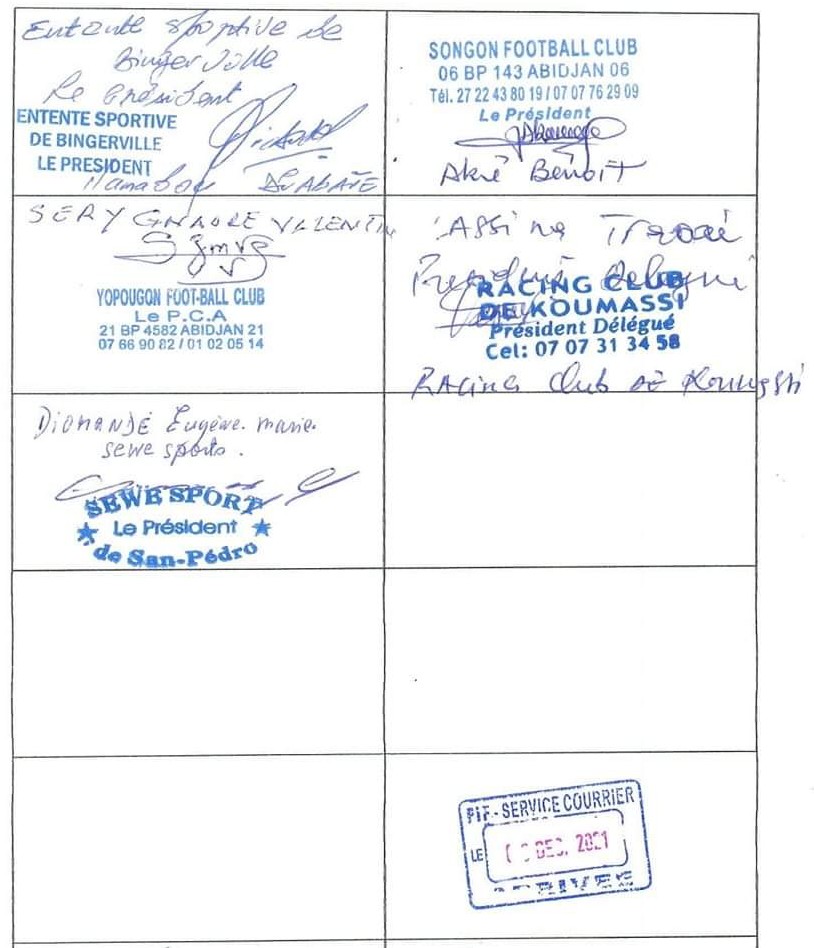 Entente sportive de
Bingerville
Le Président
ENTENTE SPORTIVE
DE BINGERVILLE
LE PRESIDENT
SONGON FOOTBALL CLUB
06 BP 143 ABIDJAN 06
Tél. 27 22 43 80 19 / 07 07 76 29 09
Le Président
Aké Bênoit
SERY GNAORE VALENTIN
YOPOUGON FOOT-BALL CLUB
Le P.C.A
21 BP 4582 ABIDJAN 21
07 66 90 82 / 01 02 05 14
RACING CLUB
DE KOUMASSI
Président Délégué
Cel: 07 07 31 34 58
Racing Club de Koumassi
DIOMANDE Eugène. marie.
sewe sports.
SEWE SPORT
Le Président
de San-Pédro
FIF - SERVICE COURRIER
LE DEC. 2021
ARRIVEE